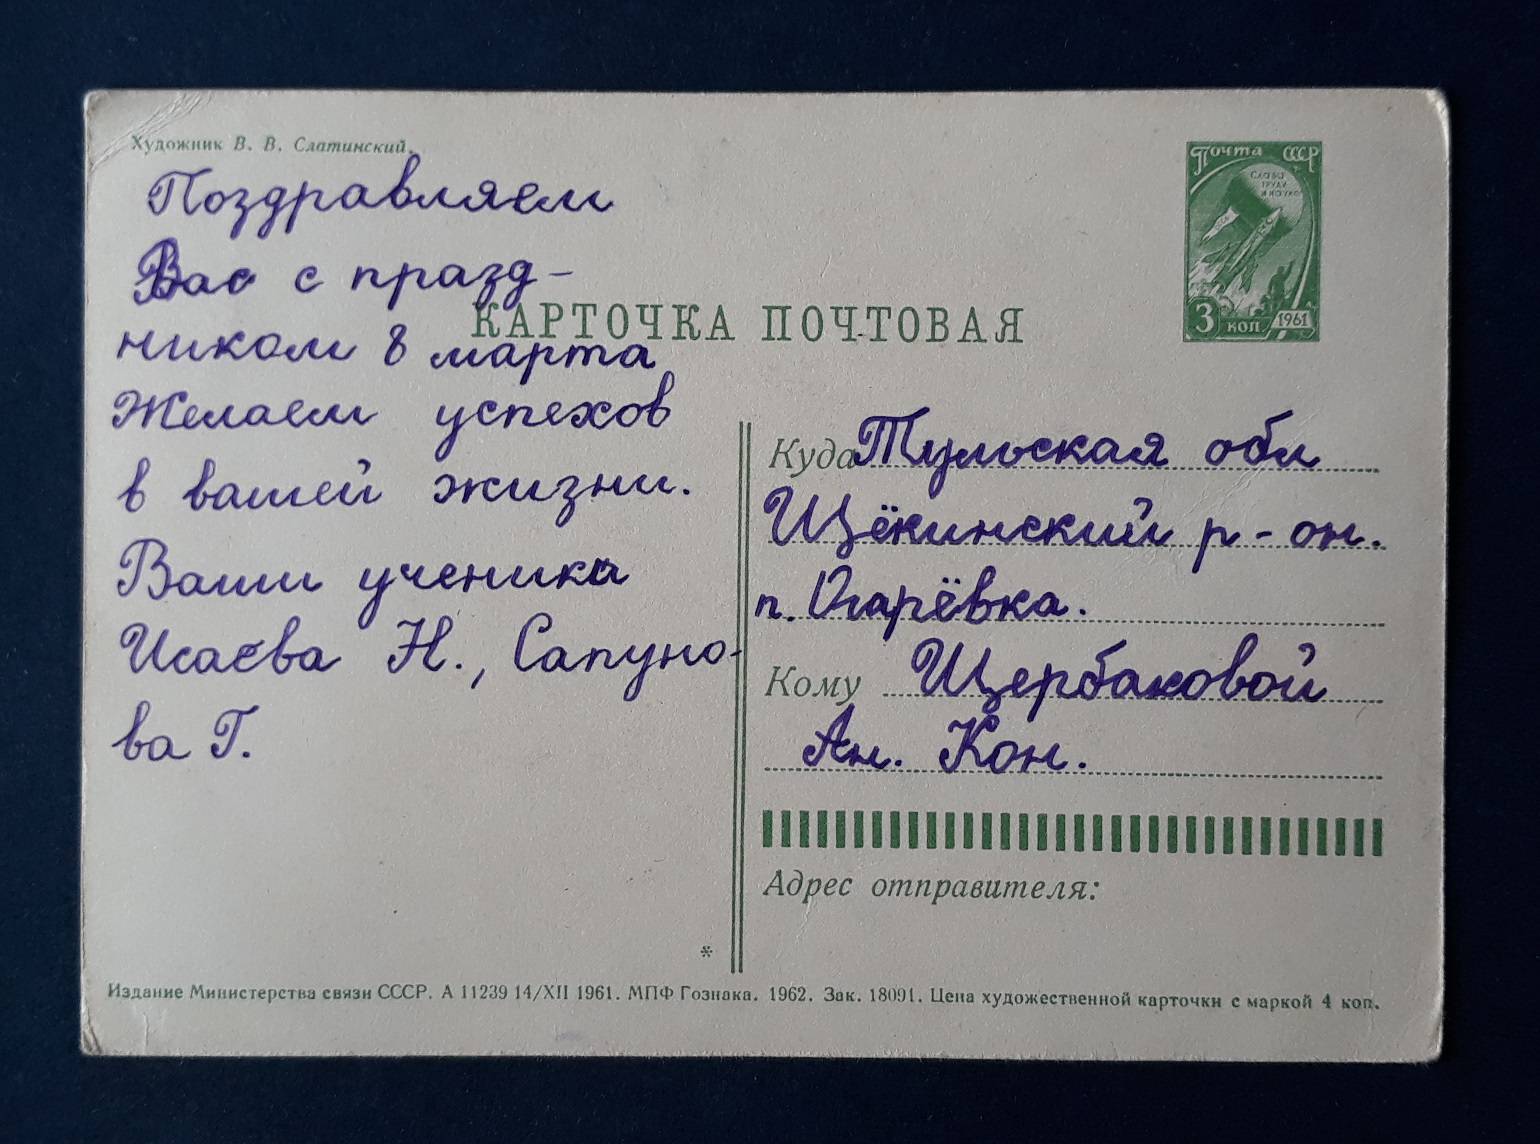 Художник В. В. Слатинский.
Почта СССР
СЛАВА
ТРУДУ
И НАУКЕ
3 коп 1961
КАРТОЧКА ПОЧТОВАЯ
Поздравляем
Вас с празд-
ником 8 марта
Желаем успехов
в вашей жизни.
Ваши ученики
Исаева Н., Сапуно-
ва Г.
Куда Тульская обл
Щёкинский р-он.
п. Огарёвка.
Кому Щербаковой
Ан. Кон.
Адрес отправителя:
*
Издание Министерства связи СССР. А 11239 14/XII 1961. МПФ Гознака. 1962. Зак. 18091. Цена художественной карточки с маркой 4 коп.